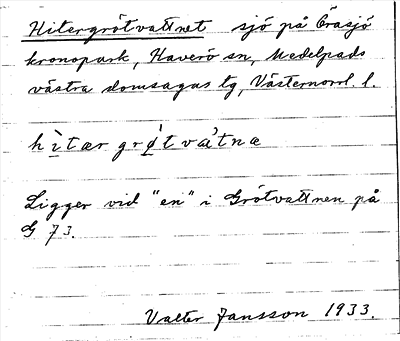 Hitergrötvattnet sjö på Öråsjö
kronopark, Haverö sn, Medelpads
västra domsagas tg, Västernorrl. l.
hìtær grø̀tvatnæ
Ligger vid "en" i Grötvattnen på
G 73.
Valter Jansson 1933.